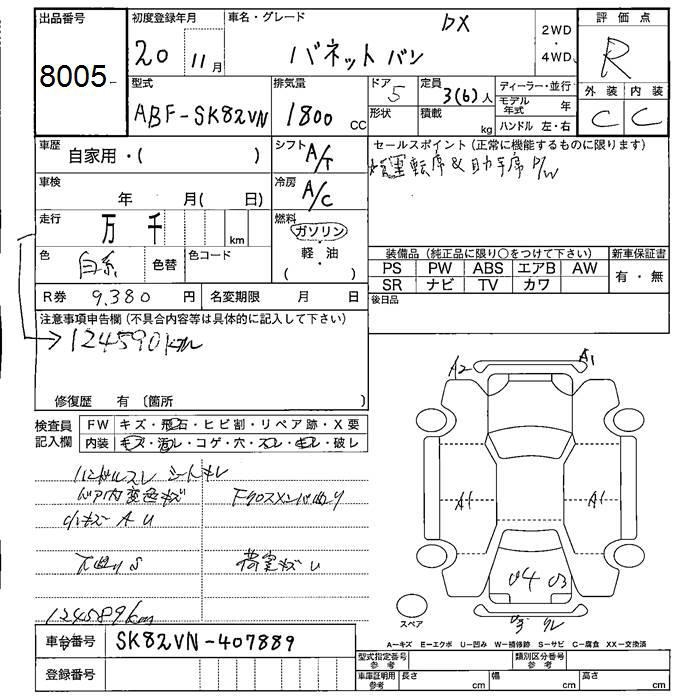 出品番号
8005
初度登録年月
20 11月
車名・グレード
DX
バネットバン
2WD
・
4WD
評価点
R
外装 内装
C C
型式
ABF-SK82VN
排気量
1800 CC
ドア 5
形状
定員
3(6)人
積載
kg
ディーラー・並行
モデル年式 年
ハンドル 左・右
車歴
自家用・( )
シフト A/T
セールスポイント (正常に機能するものに限ります)
運転席&助手席 P/W
車検
年 月( 日)
冷房 A/C
走行
万 千 km
燃料
ガソリン
軽・油
( )
色 白系
色替
色コード
装備品 (純正品に限り○をつけて下さい)
新車保証書
PS PW ABS エアB AW
有・無
SR ナビ TV カワ
R券 9,380 円
名変期限 月 日
後日品
注意事項申告欄 (不具合内容等は具体的に記入して下さい)
124590km
修復歴 有 〔箇所 〕
検査員
記入欄
FW キズ・飛石・ヒビ割・リペア跡・X要
内装 キズ・汚レ・コゲ・穴・スレ・キレ・破レ
ハンドルスレ シートキレ
ドア内変色キズ
Fクロスメンバ曲り
小キズ A U
下曲り S
荷室キズ U
124589km
A2 A1
A1 A1
U4 U3
スペア
A-キズ E-エクボ U-凹み W-補修跡 S-サビ C-腐食 XX-交換済
車台番号
SK82VN-407889
登録番号
型式指定番号
参考
類別区分番号
参考
車庫証明用
参考
長さ cm
幅 cm
高さ cm